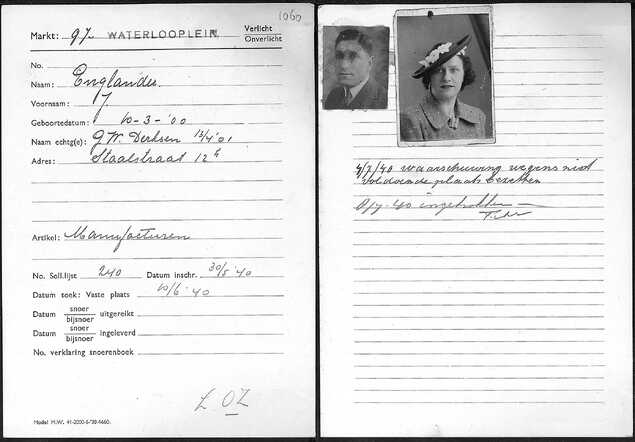 1060
Markt: 97. WATERLOOPLEIN Verlicht
Onverlicht
No.
Naam: Englander.
Voornaam: J
Geboortedatum: 10-3-'00
Naam echtg(e): G.W. Derksen 13/4 '01
Adres: Staalstraat 12
Artikel: Manufacturen
No. Soll.lijst 240 Datum inschr. 30/5 '40
Datum toek: Vaste plaats 10/6 '40
Datum snoer
bijsnoer uitgereikt
Datum snoer
bijsnoer ingeleverd
No. verklaring snoerenboek
L OZ
Model M.W. 41-2000-5-'39-4660.
4/7/'40 waarschuwing wegens niet
voldoende plaats bezetten
/7-40 ingetrokken